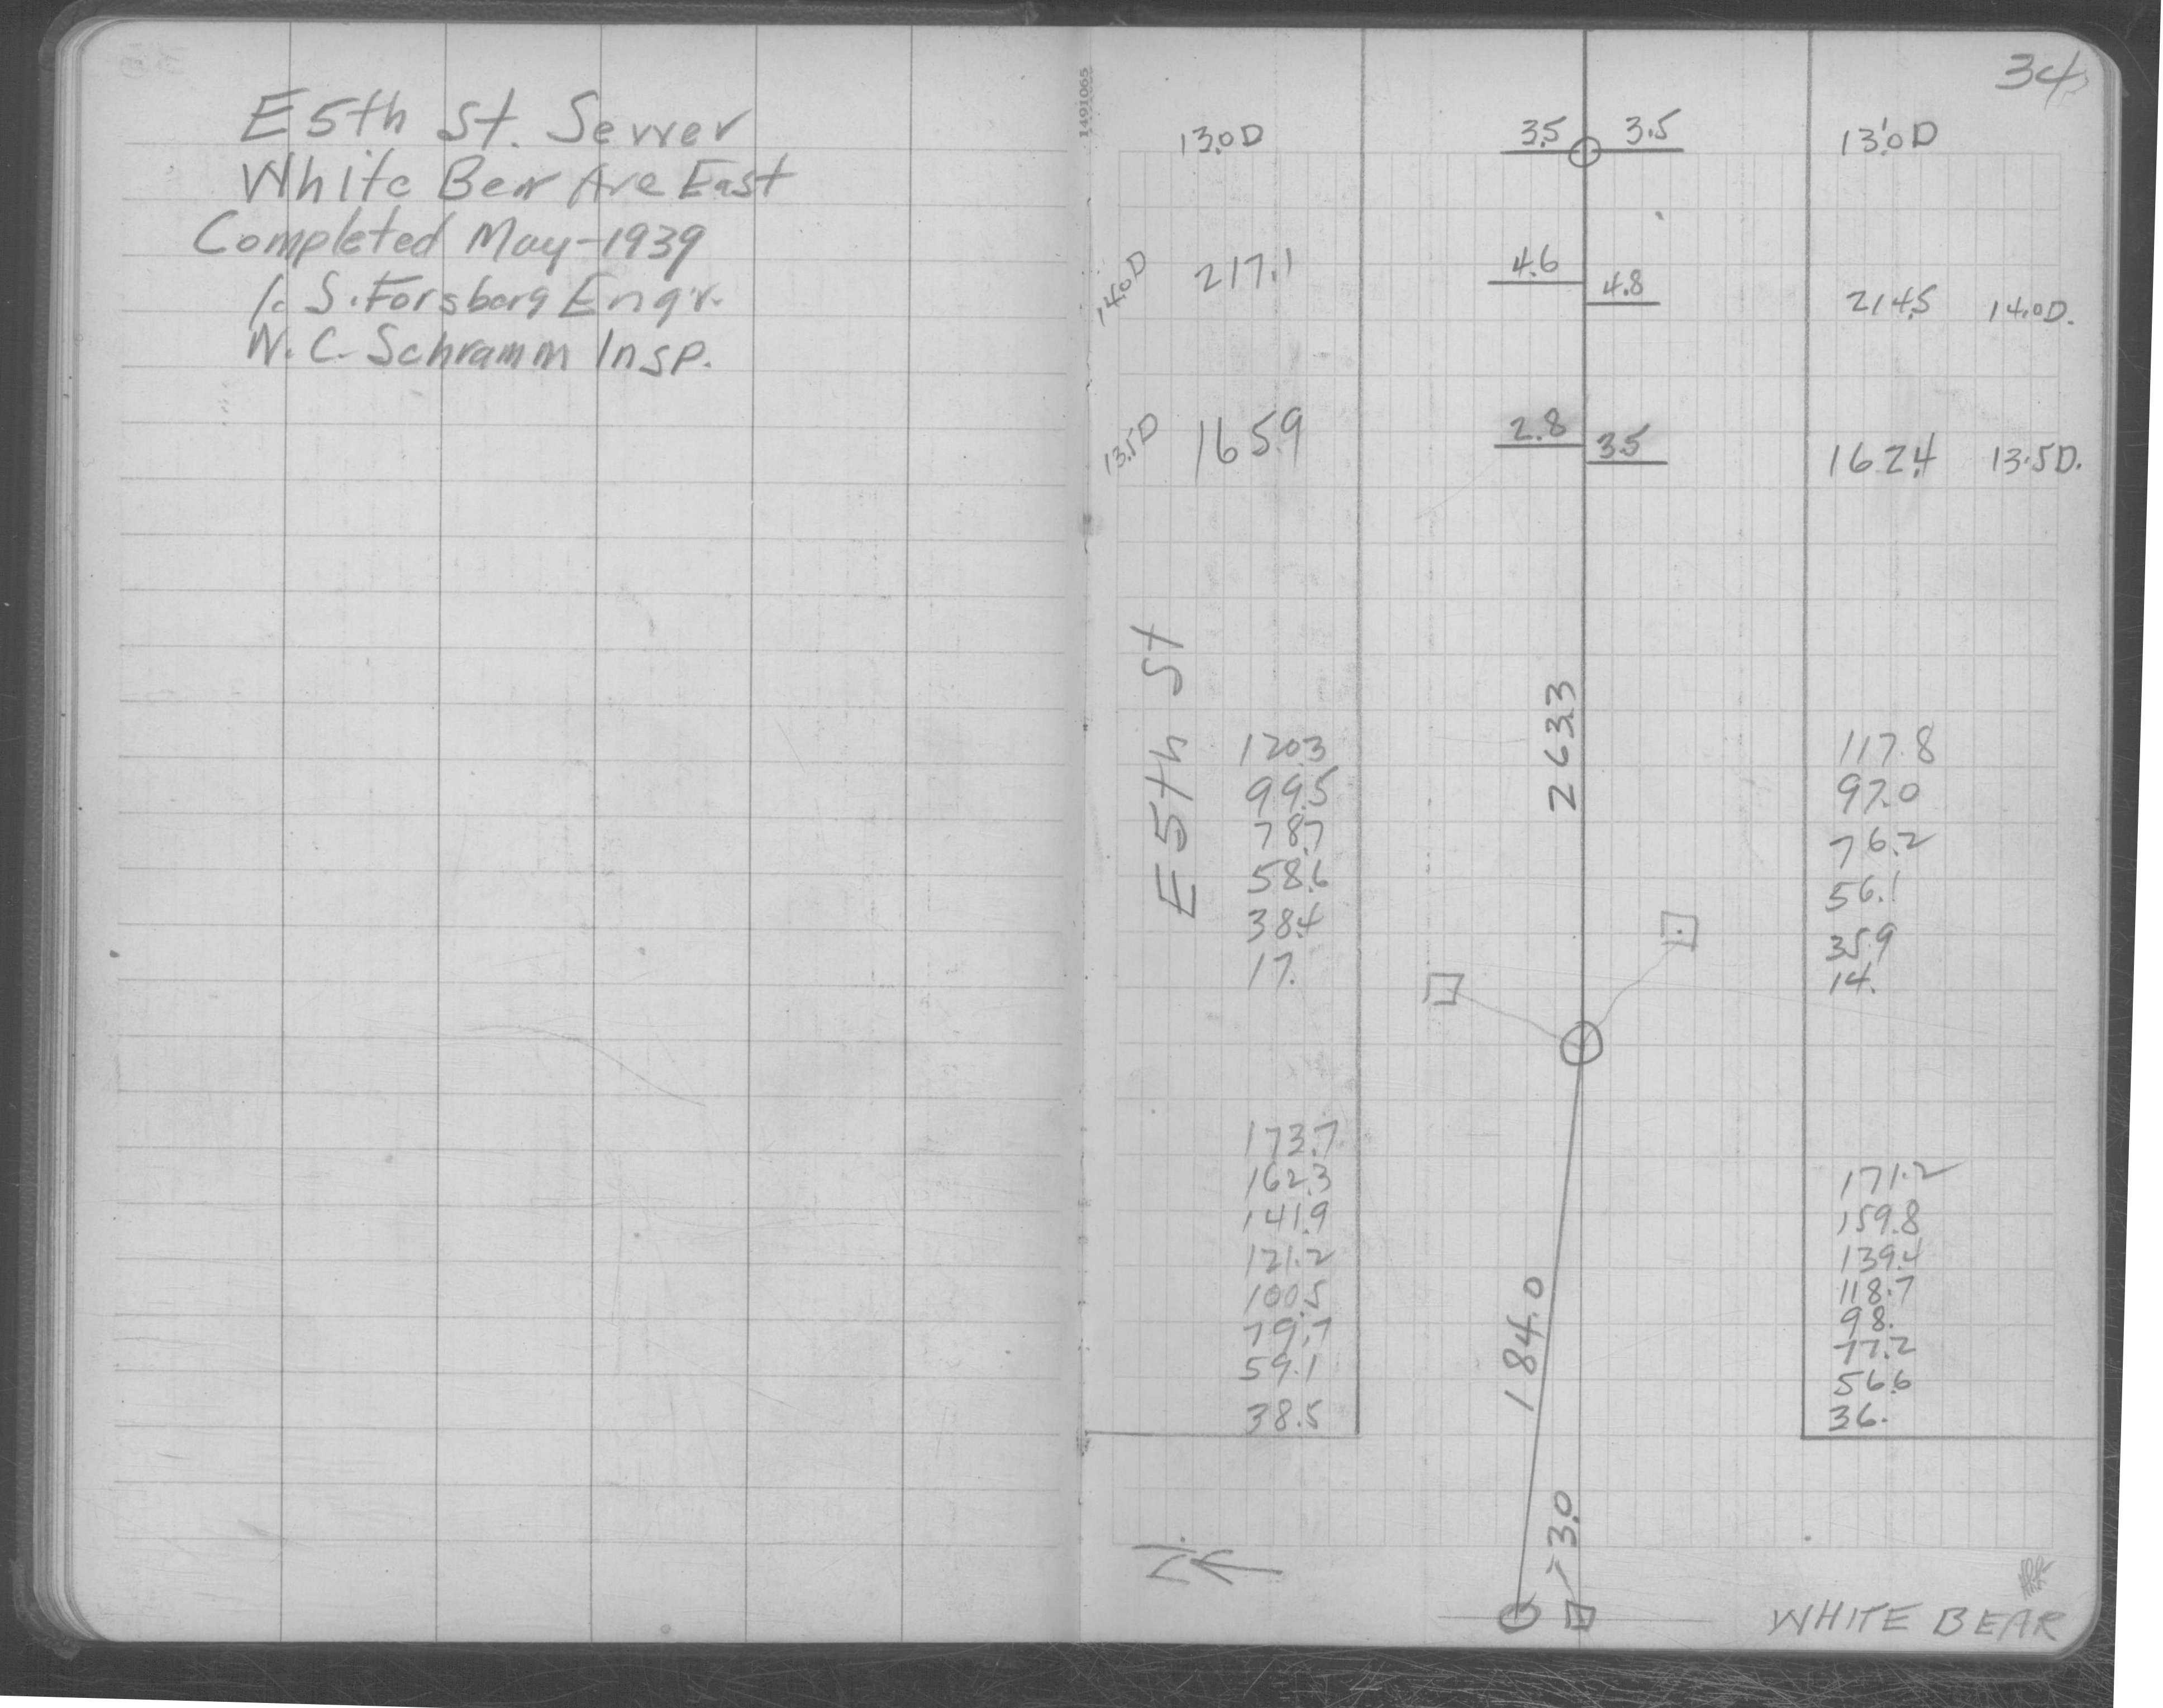 E 5th St. Sewer
White Bear Ave East
Completed May-1939
S. Forsberg Engr.
W. C. Schramm Insp.
1491065
34
13.0 D
3.5
3.5
13.0 D
14.0 D
217.1
4.6
4.8
214.5
14.0 D.
13.5 D
165.9
2.8
3.5
162.4
13.5 D.
E 5th St
263.3
120.3
99.5
78.7
58.6
38.4
17.
117.8
97.0
76.2
56.1
35.9
14.
173.7
162.3
141.9
121.2
100.5
79.7
59.1
38.5
184.0
171.2
159.8
139.4
118.7
98.
77.2
56.6
36.
3.0
N
WHITE BEAR